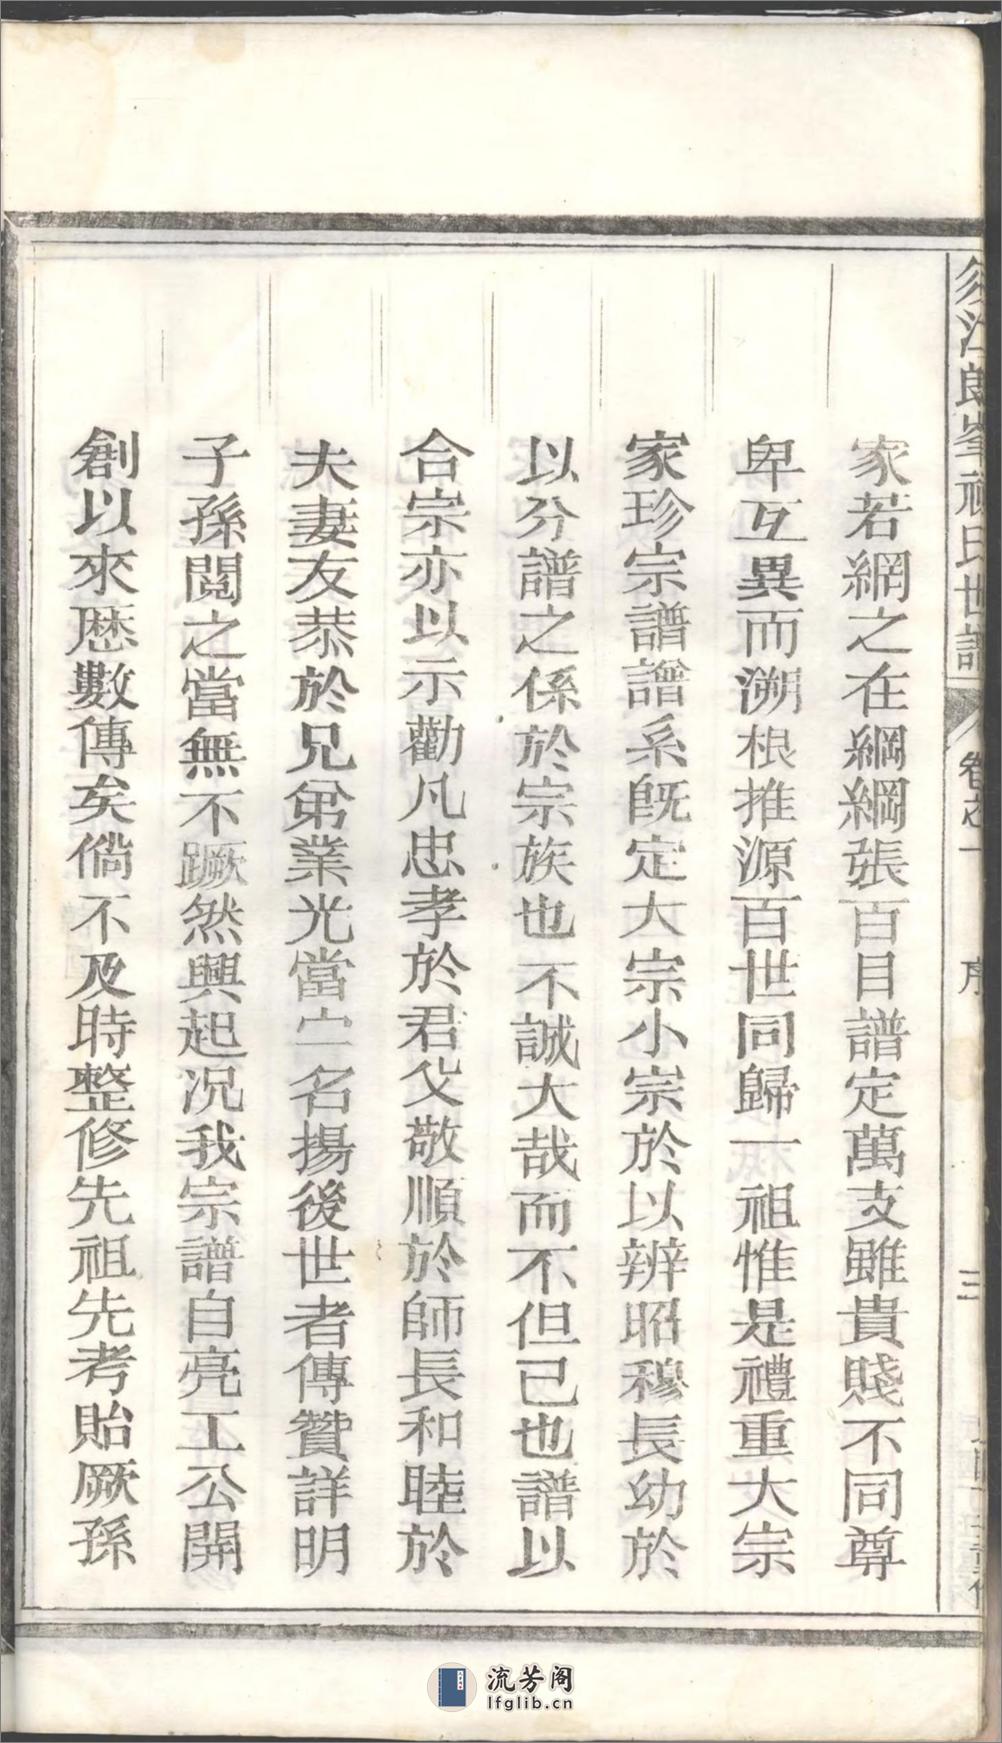 須江郎峯祝氏世譜
卷之一
序
三
家若網之在綱綱張百目譜定萬支雖貴賤不同尊
卑互異而溯根推源百世同歸一祖惟是禮重大宗
家珍宗譜譜系既定大宗小宗於以辨昭穆長幼於
以分譜之係於宗族也不誠大哉而不但已也譜以
合宗亦以示勸凡忠孝於君父敬順於師長和睦於
夫妻友恭於兄弟業光當宁名揚後世者傳贊詳明
子孫閱之當無不蹶然興起况我宗譜自亮工公開
創以來歷數傳矣倘不及時整修先祖先考貽厥孫
流芳阁
lfglib.cn